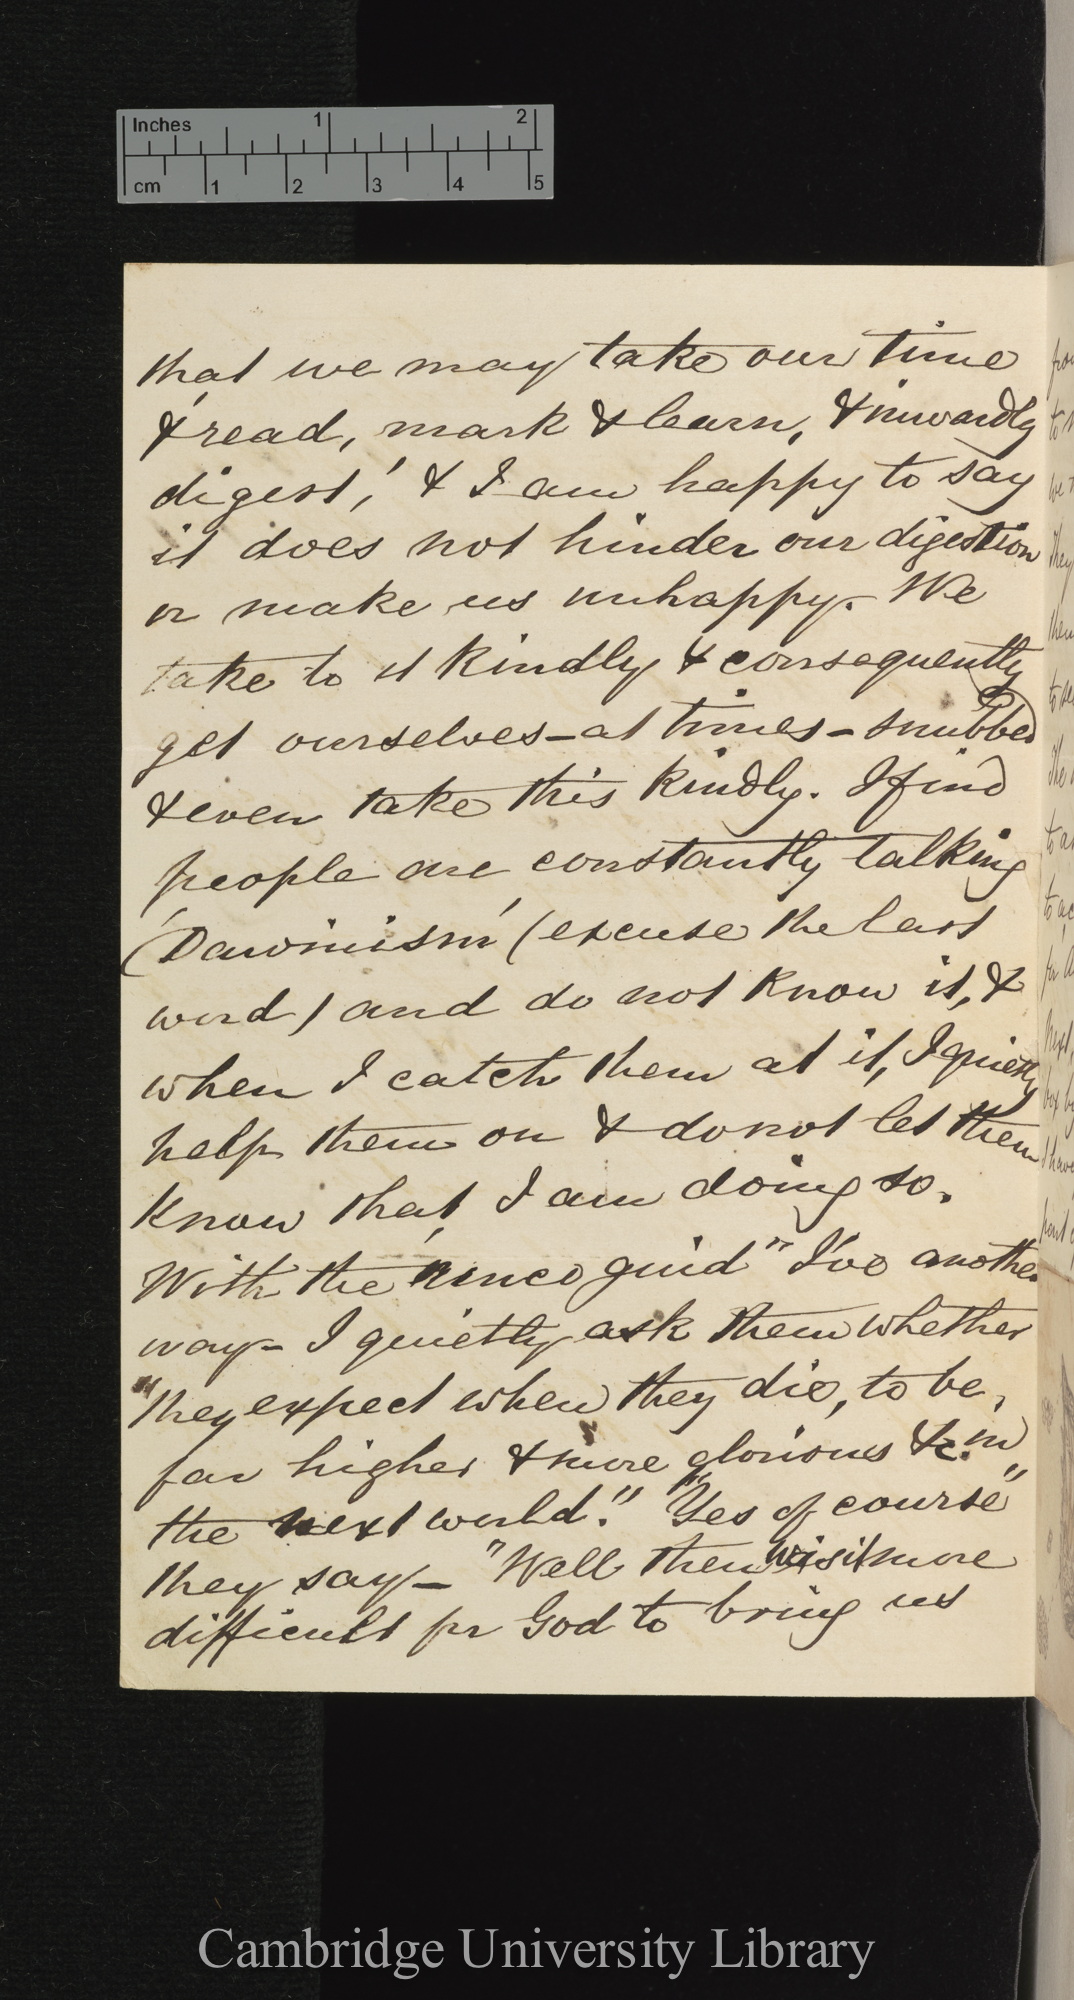 Inches 1 2
cm 1 2 3 4 5
that we may take our time
& 'read, mark & learn, & inwardly
digest,' & I am happy to say
it does not hinder our digestion
or make us unhappy. We
take to it kindly & consequently
get ourselves – at times – snubbed
& even take this kindly. I find
people are constantly talking
'Darwinism' (excuse the last
word) and do not know it, &
when I catch them at it, I quietly
help them on & do not let them
know that I am doing so.
With the "unco guid" I've another
way – I quietly ask them whether
"they expect when they die, to be,
far higher & more glorious &c. in
the next world." "Yes of course"
they say – "Well then is it more
difficult for God to bring us
Cambridge University Library